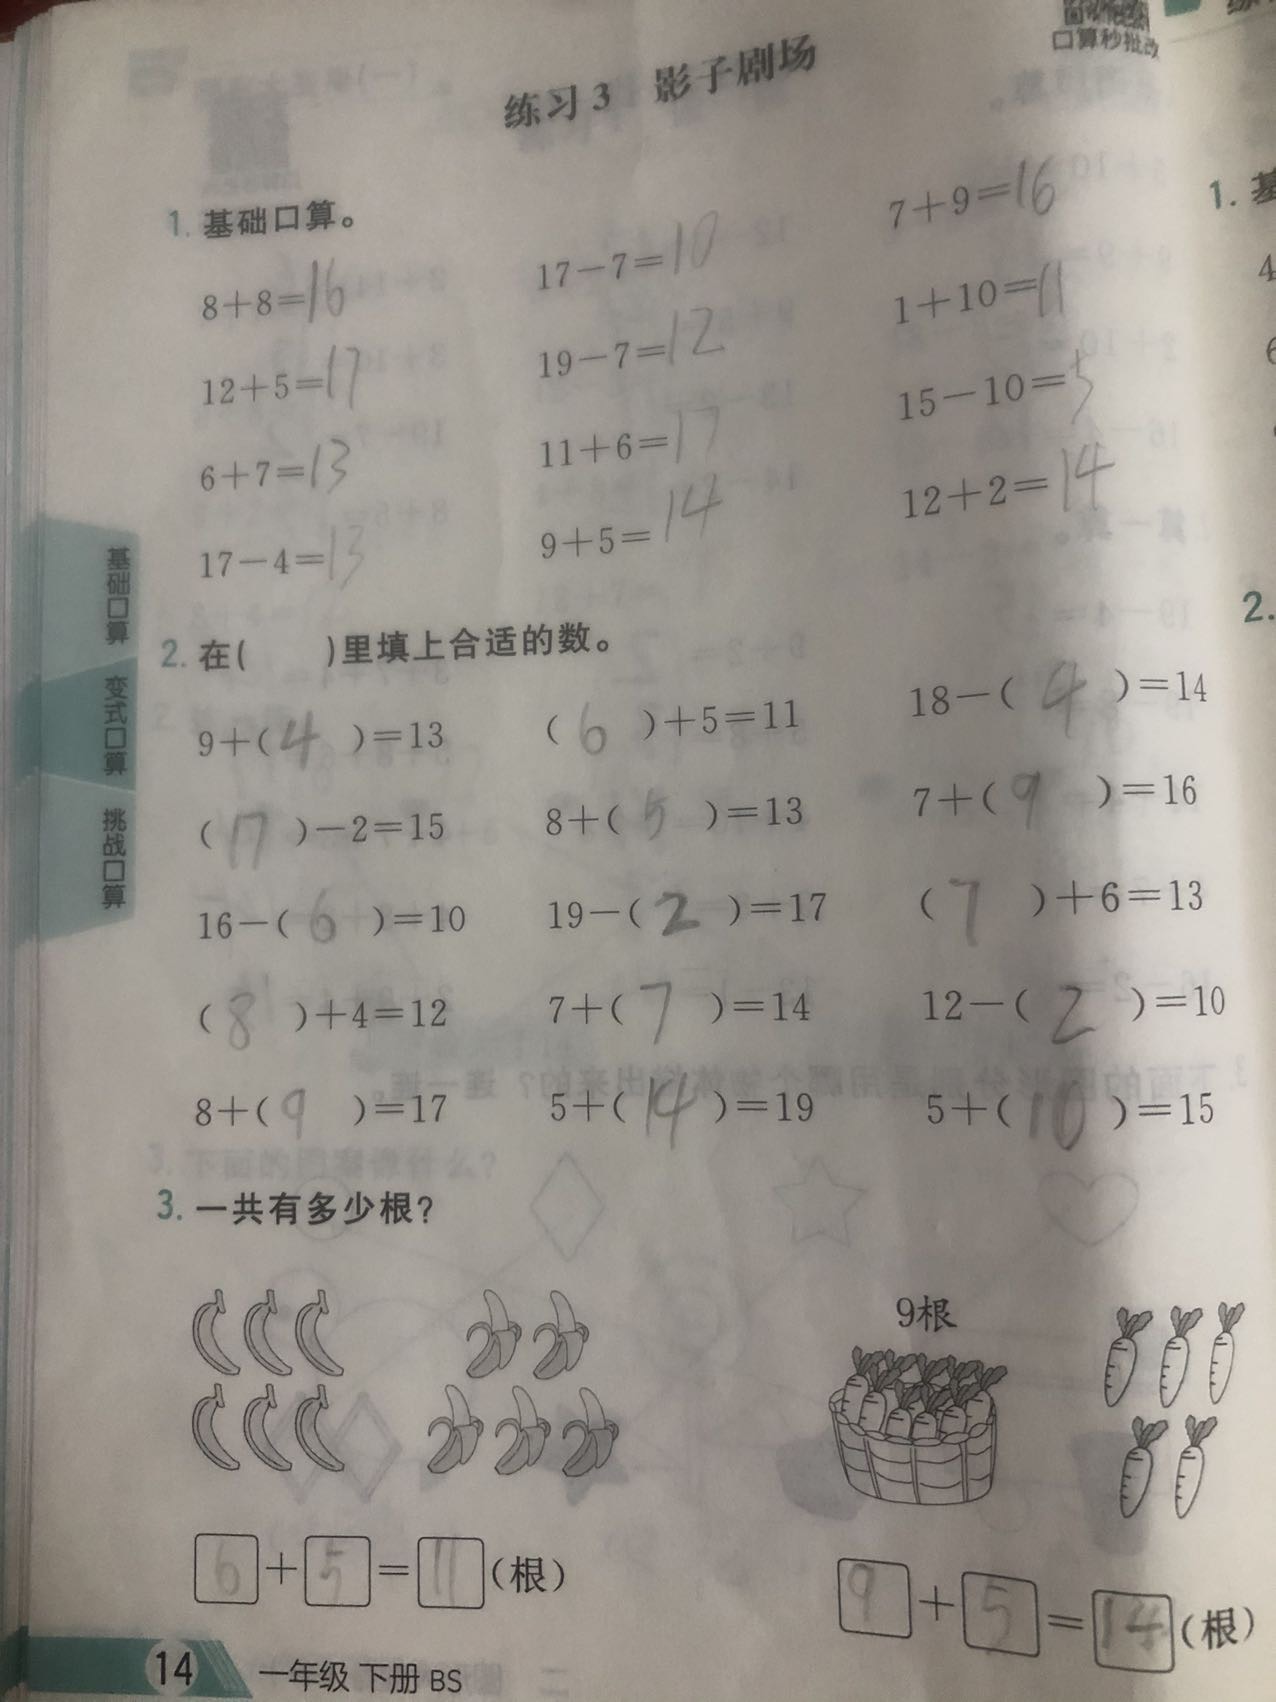 口算秒批改
练习3 影子剧场
1. 基础口算。
8+8=16 17-7=10 7+9=16
12+5=17 19-7=12 1+10=11
6+7=13 11+6=17 15-10=5
17-4=13 9+5=14 12+2=14
2. 在( )里填上合适的数。
9+(4)=13 (6)+5=11 18-(4)=14
(17)-2=15 8+(5)=13 7+(9)=16
16-(6)=10 19-(2)=17 (7)+6=13
(8)+4=12 7+(7)=14 12-(2)=10
8+(9)=17 5+(14)=19 5+(10)=15
3. 一共有多少根?
9根
6+5=11(根) 9+5=14(根)
基础口算
变式口算
挑战口算
14 一年级 下册 BS
1.
2.